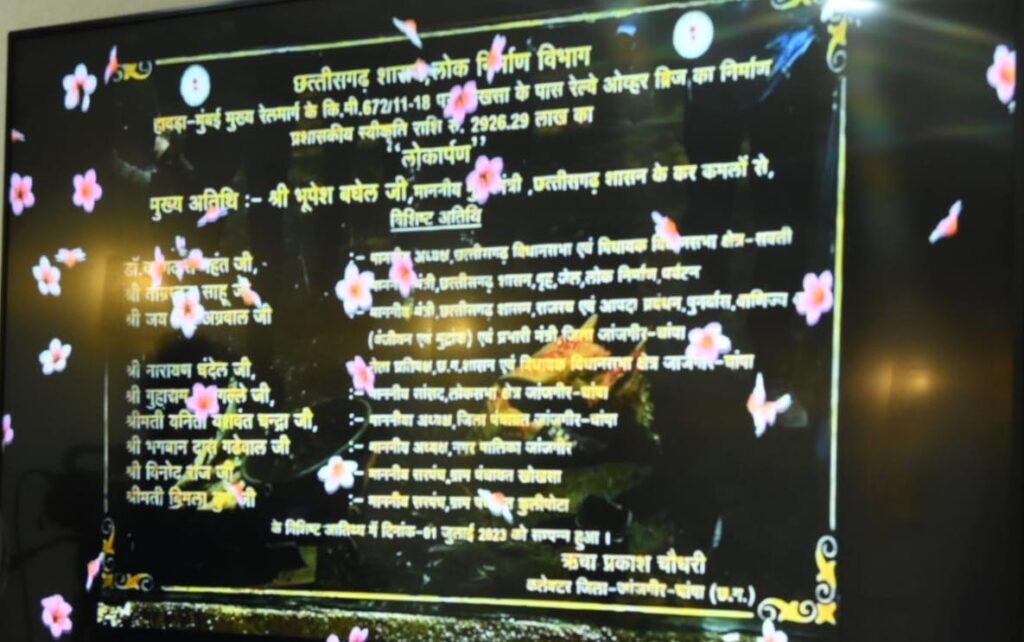 छत्तीसगढ़ शासन,लोक निर्माण विभाग
हावड़ा–मुंबई मुख्य रेलमार्ग के कि.मी.672/11-18 पर खोखसा के पास रेल्वे ओव्हर ब्रिज का निर्माण
प्रशासकीय स्वीकृति राशि रु. 2926.29 लाख का
"लोकार्पण"
मुख्य अतिथि :– श्री भूपेश बघेल जी,माननीय मुख्यमंत्री ,छत्तीसगढ़ शासन के कर कमलों से,
विशिष्ट अतिथि
महंत जी, :– माननीय अध्यक्ष,छत्तीसगढ़ विधानसभा एवं विधायक विधानसभा क्षेत्र–सक्ती
श्री साहू जी, :– माननीय मंत्री,छत्तीसगढ़ शासन,गृह,जेल,लोक निर्माण,पर्यटन
श्री जय अग्रवाल जी :– माननीय मंत्री,छत्तीसगढ़ शासन,राजस्व एवं आपदा प्रबंधन,पुनर्वास,वाणिज्य
(पंजीयन एवं मुद्रांक) एवं प्रभारी मंत्री,जिला जांजगीर–चांपा
श्री नारायण चंदेल जी, :– नेता प्रतिपक्ष,छ.ग.शासन एवं विधायक विधानसभा क्षेत्र जांजगीर–चांपा
श्री गुहाराम जी, :– माननीय सांसद,लोकसभा क्षेत्र जांजगीर–चांपा
श्रीमती यनिता यशवंत चन्द्रा जी, :– माननीया अध्यक्ष,जिला पंचायत जांजगीर–चांपा
श्री भगवान दास गढेवाल जी :– माननीय अध्यक्ष,नगर पालिका जांजगीर
श्री विनोद जी, :– माननीय सरपंच,ग्राम पंचायत खोखसा
श्रीमती विमला जी :– माननीय सरपंच,ग्राम पंचायत कुलीपोटा
के विशिष्ट आतिथ्य में दिनांक–01 जुलाई 2023 को सम्पन्न हुआ ।
ऋचा प्रकाश चौधरी
कलेक्टर जिला–जांजगीर–चांपा (छ.ग.)